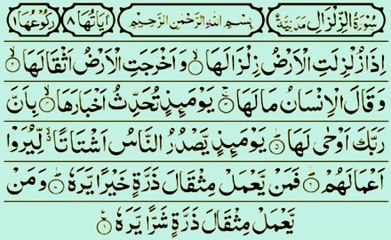 سُوْرَةُ الزِّلْزَالِ مَدَنِيَّةٌ بِسْمِ اللهِ الرَّحْمٰنِ الرَّحِيْمِ اٰيَاتُهَا ٨ رُكُوْعُهَا ١
اِذَا زُلْزِلَتِ الْاَرْضُ زِلْزَالَهَا ۙ وَاَخْرَجَتِ الْاَرْضُ اَثْقَالَهَا ۙ
وَقَالَ الْاِنْسَانُ مَا لَهَا ۚ يَوْمَئِذٍ تُحَدِّثُ اَخْبَارَهَا ۙ بِاَنَّ
رَبَّكَ اَوْحٰى لَهَا ؕ يَوْمَئِذٍ يَّصْدُرُ النَّاسُ اَشْتَاتًا ۙ لِّيُرَوْا
اَعْمَالَهُمْ ؕ فَمَنْ يَّعْمَلْ مِثْقَالَ ذَرَّةٍ خَيْرًا يَّرَهٗ ؕ وَمَنْ
يَّعْمَلْ مِثْقَالَ ذَرَّةٍ شَرًّا يَّرَهٗ